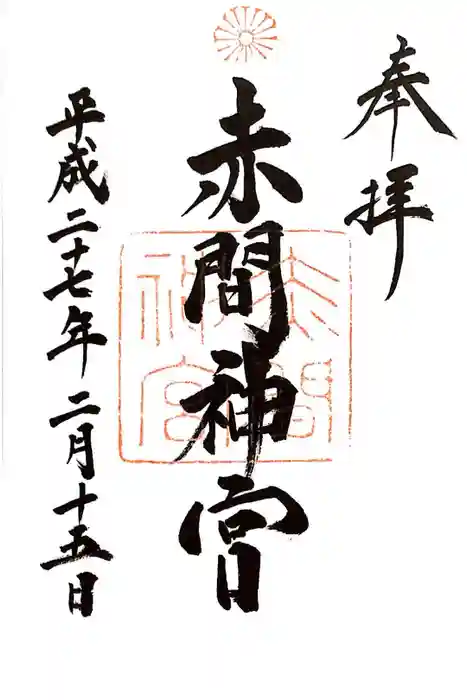 奉拝
赤間神宮
赤間
神宮
平成二十七年二月十五日